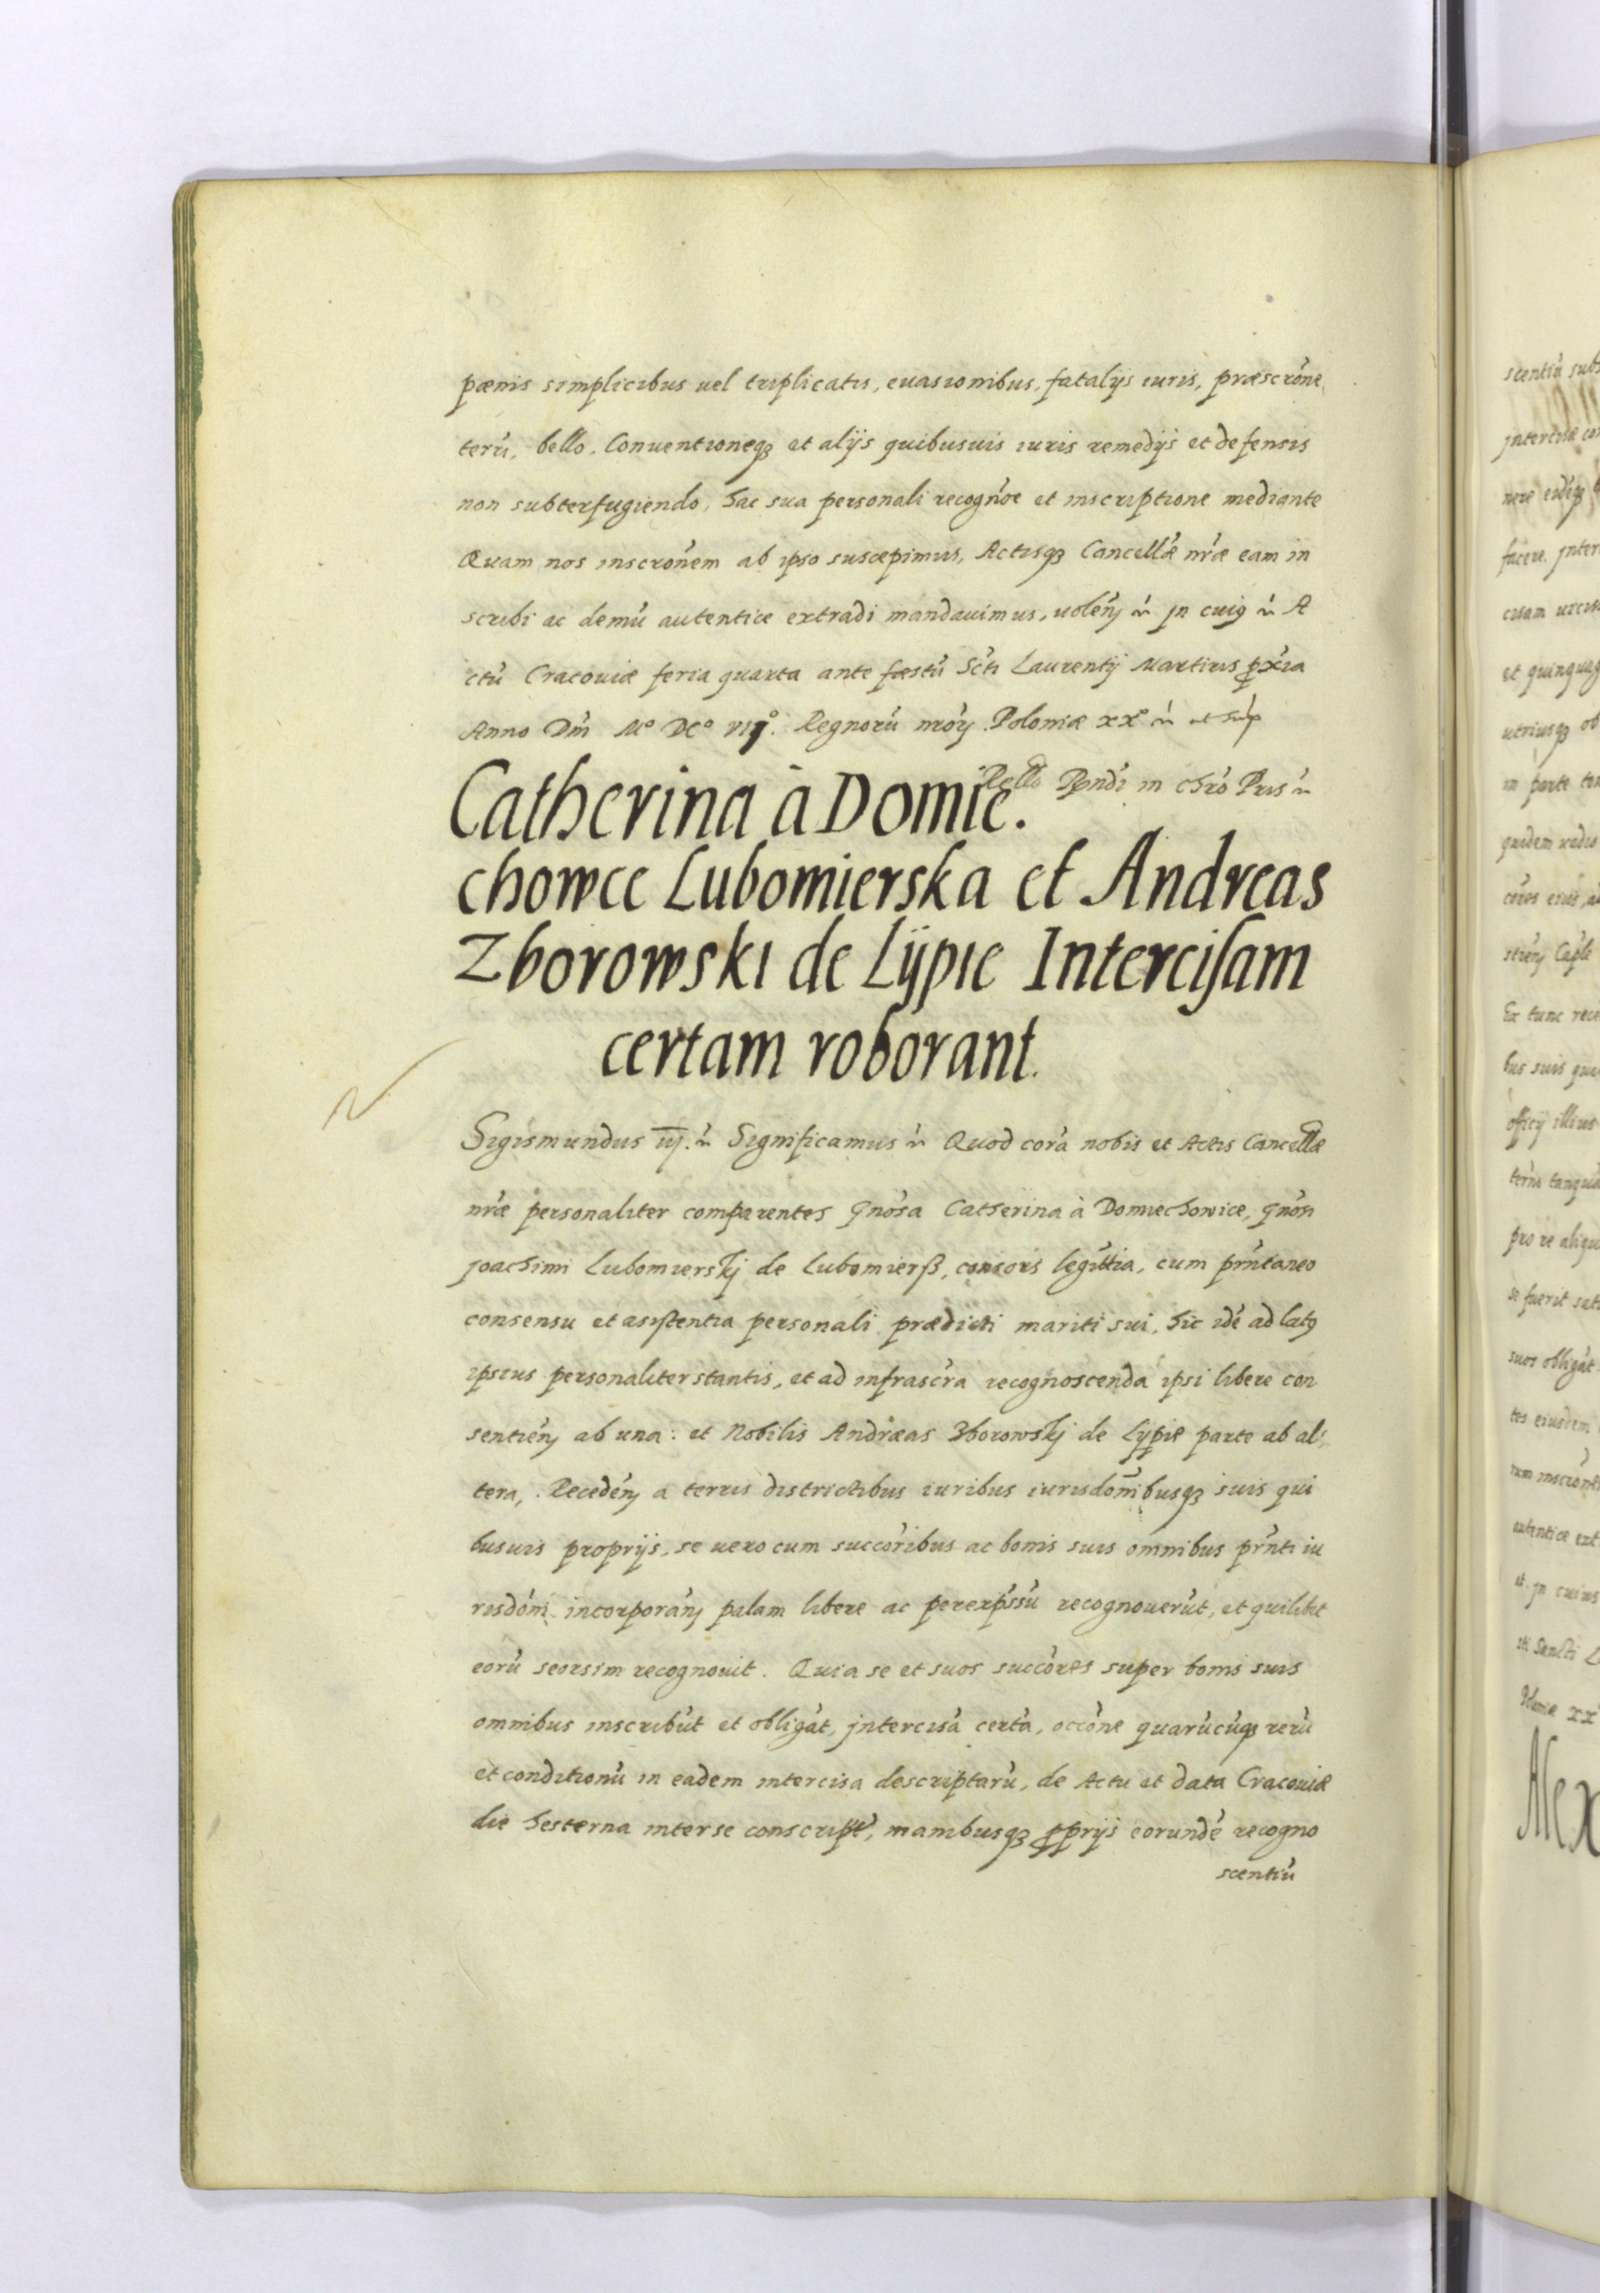 pænis simplicibus uel triplicatis, euasionibus, fatalijs iuris, præscrõne
terrj, bello, Conuentioneqʒ et alijs quibusuis iuris remedijs et defensis
non subterfugiendo, hac sua personali recogn̄oe et inscriptione mediante
Quam nos inscron̄em ab ipso suscepimus, Actisqʒ Cancellæ nr̄æ eam in
scribi ac demū autentice extradi mandauimus, uolen̄ ꝛ̄ jn cuiꝯ ꝛ̄ A
ctū Cracouiæ feria quarta ante fæstū Sc̄ti Laurentij Martiris ꝓxīa
Anno Dn̄i Mº DCº VIJº. Regnorū nr̄oꝝ Poloniæ xxº ꝛ̄ ut suṕ
Rello Rn̄di in Chrō Pr̄is ꝛ̄
Catherina à Domie.
chowce Lubomierska et Andreas
Zborowski de Lÿpie Interciſam
certam roborant.
Sigismundus iij. ꝛ̄ Significamus ꝛ̄ Quod corā nobis et Actis Cancellæ
nr̄æ personaliter comparentes Gn̄osa Catherina à Domiechowice, Gn̄osi
Joachimi Lubomierskj de Lubomierß, consors legittīa, cum pr̄ntaneo
consensu et asiſtentia personali prædicti mariti sui, hic idē ad latꝯ
ipsius personaliter stantis, et ad infrascr̄a recognoscenda ipsi libere con
sentien̄ ab una: et Nobilis Andræas Zborowskj de Lÿpie parte ab al:
tera, Receden̄ a terris districtibus iuribus iurisdōnibusqʒ suis qui
busuis proprijs, se uero cum succōribus ac bonis suis omnibus pr̄nti iu
risdōni incorporan̄ palam libere ac per exp̄ssū recognouerūt, et quilibet
eorū seorsim recognouit. Quia se et suos succōres super bonis suis
omnibus inscribūt et obligāt, jntercisā certā, occōne quarūcūqʒ rerū
et conditionū in eadem intercisa descriptarū, de Actu et data Cracouiæ
die hesterna inter se conscriptē, manibusqʒ ꝓprijs eorundē recogno
scentiū